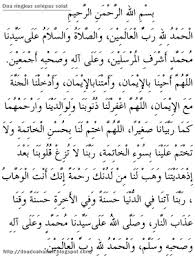 Doa ringkas selepas solat
بِسْمِ اللهِ الرَّحْمَنِ الرَّحِيْمِ
الْحَمْدُ للهِ رَبِّ الْعَالَمِيْنَ، وَالصَّلَاةُ وَالسَّلَامُ عَلَى سَيِّدِنَا
مُحَمَّدٍ أَشْرَفِ الْمُرْسَلِيْنَ، وَعَلَى آلِهِ وَصَحْبِهِ أَجْمَعِيْنَ.
اللَّهُمَّ أَحْيِنَا بِالْإِيْمَانِ، وَأَمِتْنَا بِالْإِيْمَانِ، وَأَدْخِلْنَا الْجَنَّةَ
مَعَ الْإِيْمَانِ، اللَّهُمَّ اغْفِرْلَنَا ذُنُوْبَنَا وَلِوَالِدِيْنَا وَارْحَمْهُمَا
كَمَا رَبَّيَانَا صَغِيْرًا، اللَّهُمَّ اخْتِمْ لَنَا بِحُسْنِ الْخَاتِمَةِ وَلَا
تَخْتِمْ عَلَيْنَا بِسُوْءِ الْخَاتِمَةِ، رَبَّنَا لَا تُزِغْ قُلُوْبَنَا بَعْدَ
إِذْ هَدَيْتَنَا وَهَبْ لَنَا مِنْ لَدُنْكَ رَحْمَةً إِنَّكَ أَنْتَ الْوَهَّابُ
، رَبَّنَا آتِنَا فِي الدُّنْيَا حَسَنَةً وَفِي الْآخِرَةِ حَسَنَةً وَقِنَا
عَذَابَ النَّارِ، وَصَلَّى اللهُ عَلَى سَيِّدِنَا مُحَمَّدٍ وَعَلَى آلِهِ
وَصَحْبِهِ وَسَلَّمَ، وَالْحَمْدُ للهِ رَبِّ الْعَالَمِيْنَ.